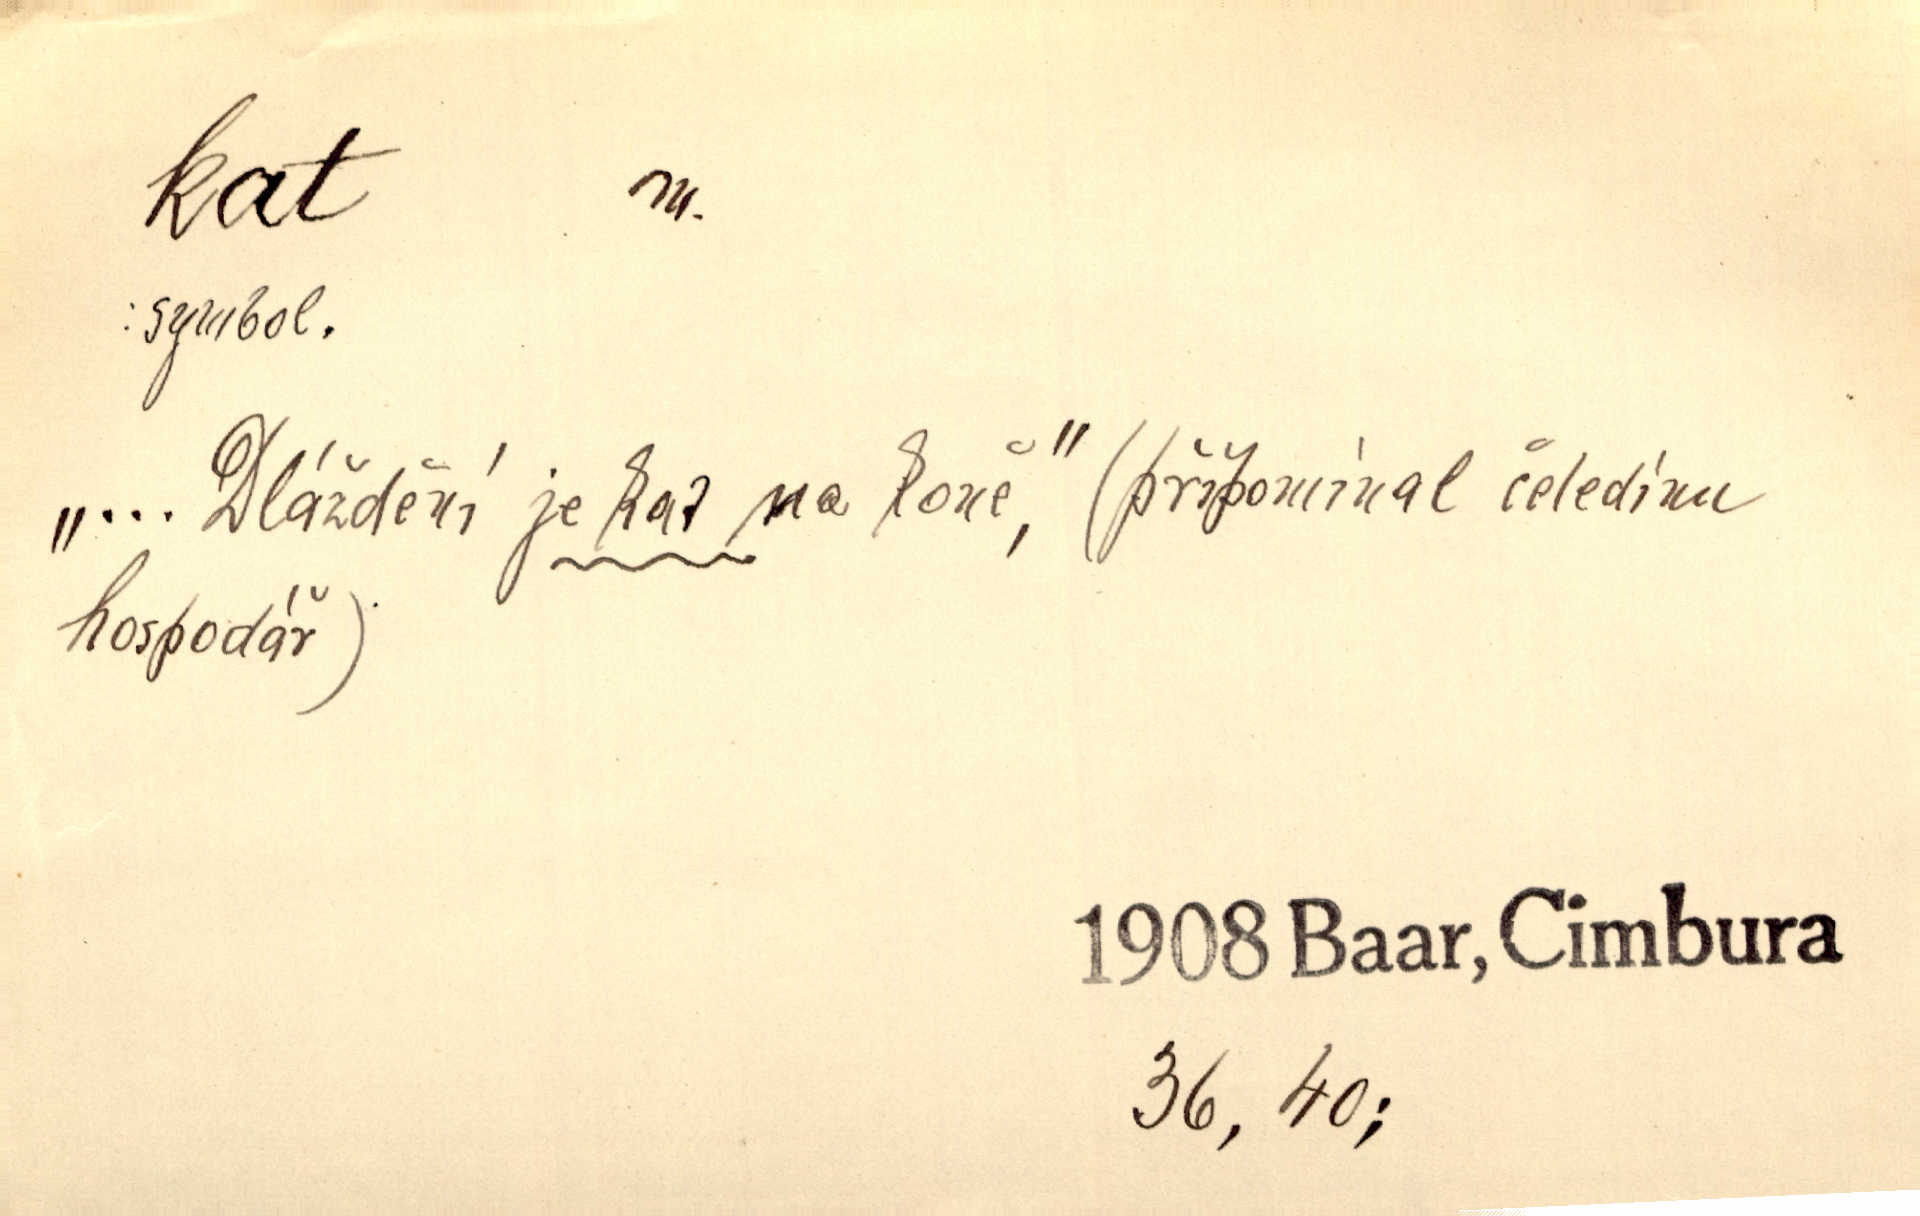 kat m.
: symbol.
„... Dláždění je kat na koně," (připomínal čeledínu
hospodář)
1908 Baar, Cimbura
36, 40;